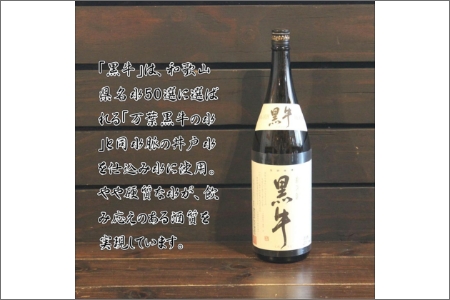 「黒牛」は、和歌山
県名水50選に選ば
れる「万葉黒牛の水
」と同水脈の井戸水
を仕込み水に使用。
やや硬質な水が、飲
み応えのある酒質を
実現しています。
黒牛
黒牛